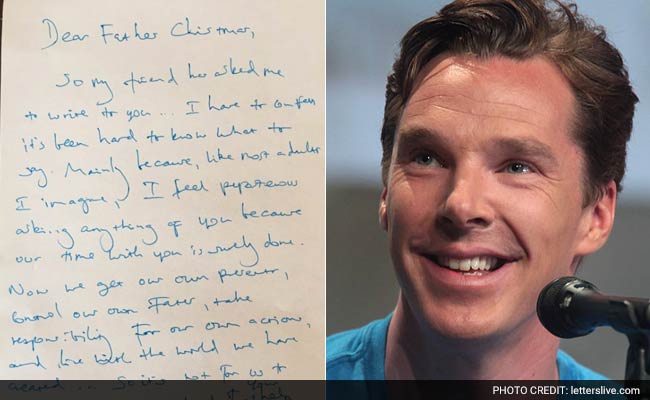 Dear Father Christmas,
So my friend has asked me
to write to you... I have to confess
it's been hard to know what to
say. Mainly because, like most adults
I imagine, I feel
asking anything of you because
our time with you is surely done.
Now we get our own presents,
our own Fates, take
responsibility for our own actions,
and live with the world we have
created... So it's not for us to
your
PHOTO CREDIT: letterslive.com